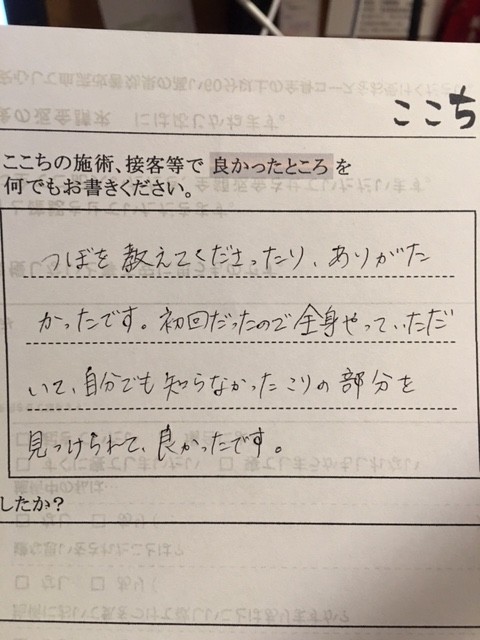 ここち
ここちの施術、接客等で 良かったところ を
何でもお書きください。
つぼを教えてくださったり、ありがた
かったです。初回だったので全身やっていただ
いて、自分でも知らなかったこりの部分を
見つけられて、良かったです。
したか？